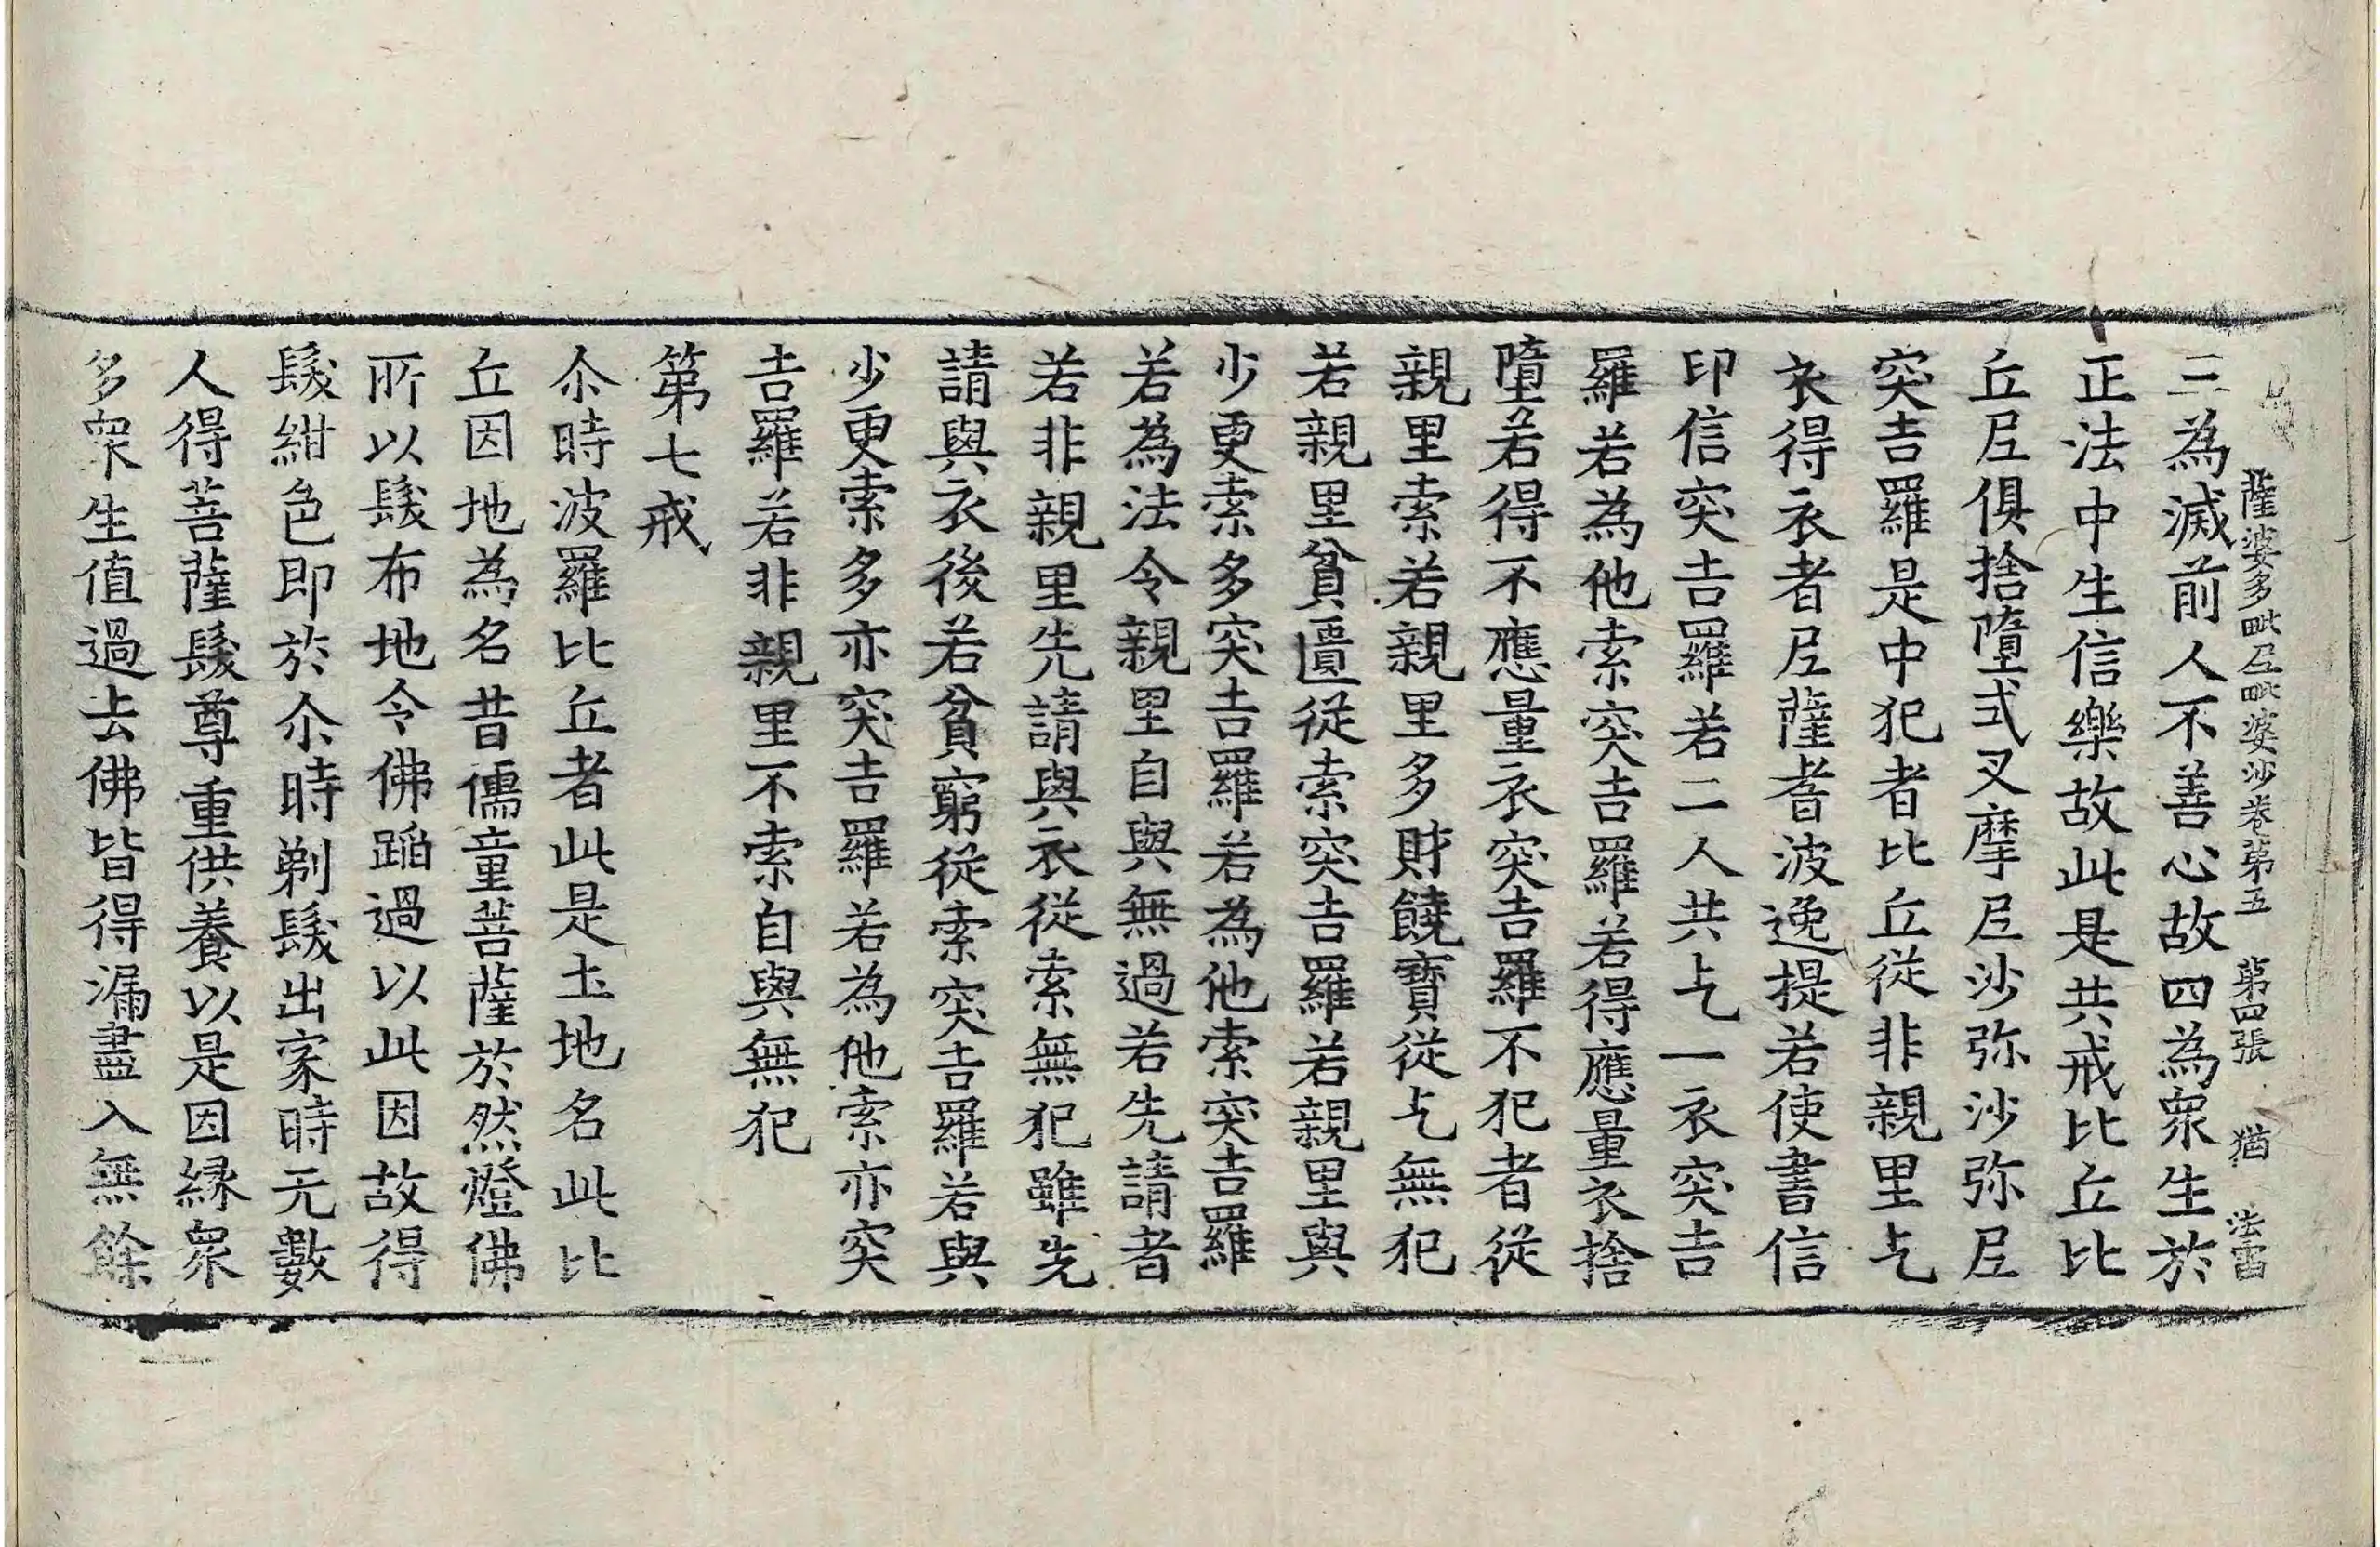 薩婆多毗尼毗婆沙卷第五 第四張 猶 法雷
三為滅前人不善心故四為眾生於
正法中生信樂故此是共戒比丘比
丘尼俱捨墮式叉摩尼沙弥沙弥尼
突吉羅是中犯者比丘從非親里乞
衣得衣者尼薩耆波逸提若使書信
印信突吉羅若二人共乞一衣突吉
羅若為他索突吉羅若得應量衣捨
墮若得不應量衣突吉羅不犯者從
親里索若親里多財饒寶從乞無犯
若親里貧匱從索突吉羅若親里與
少更索多突吉羅若為他索突吉羅
若為法令親里自與無過若先請者
若非親里先請與衣從索無犯雖先
請與衣後若貧窮從索突吉羅若與
少更索多亦突吉羅若為他索亦突
吉羅若非親里不索自與無犯
第七戒
尒時波羅比丘者此是土地名此比
丘因地為名昔儒童菩薩於然燈佛
所以髮布地令佛蹈過以此因故得
髮紺色即於尒時剃髮出家時无數
人得菩薩髮尊重供養以是因緣眾
多眾生值過去佛皆得漏盡入無餘